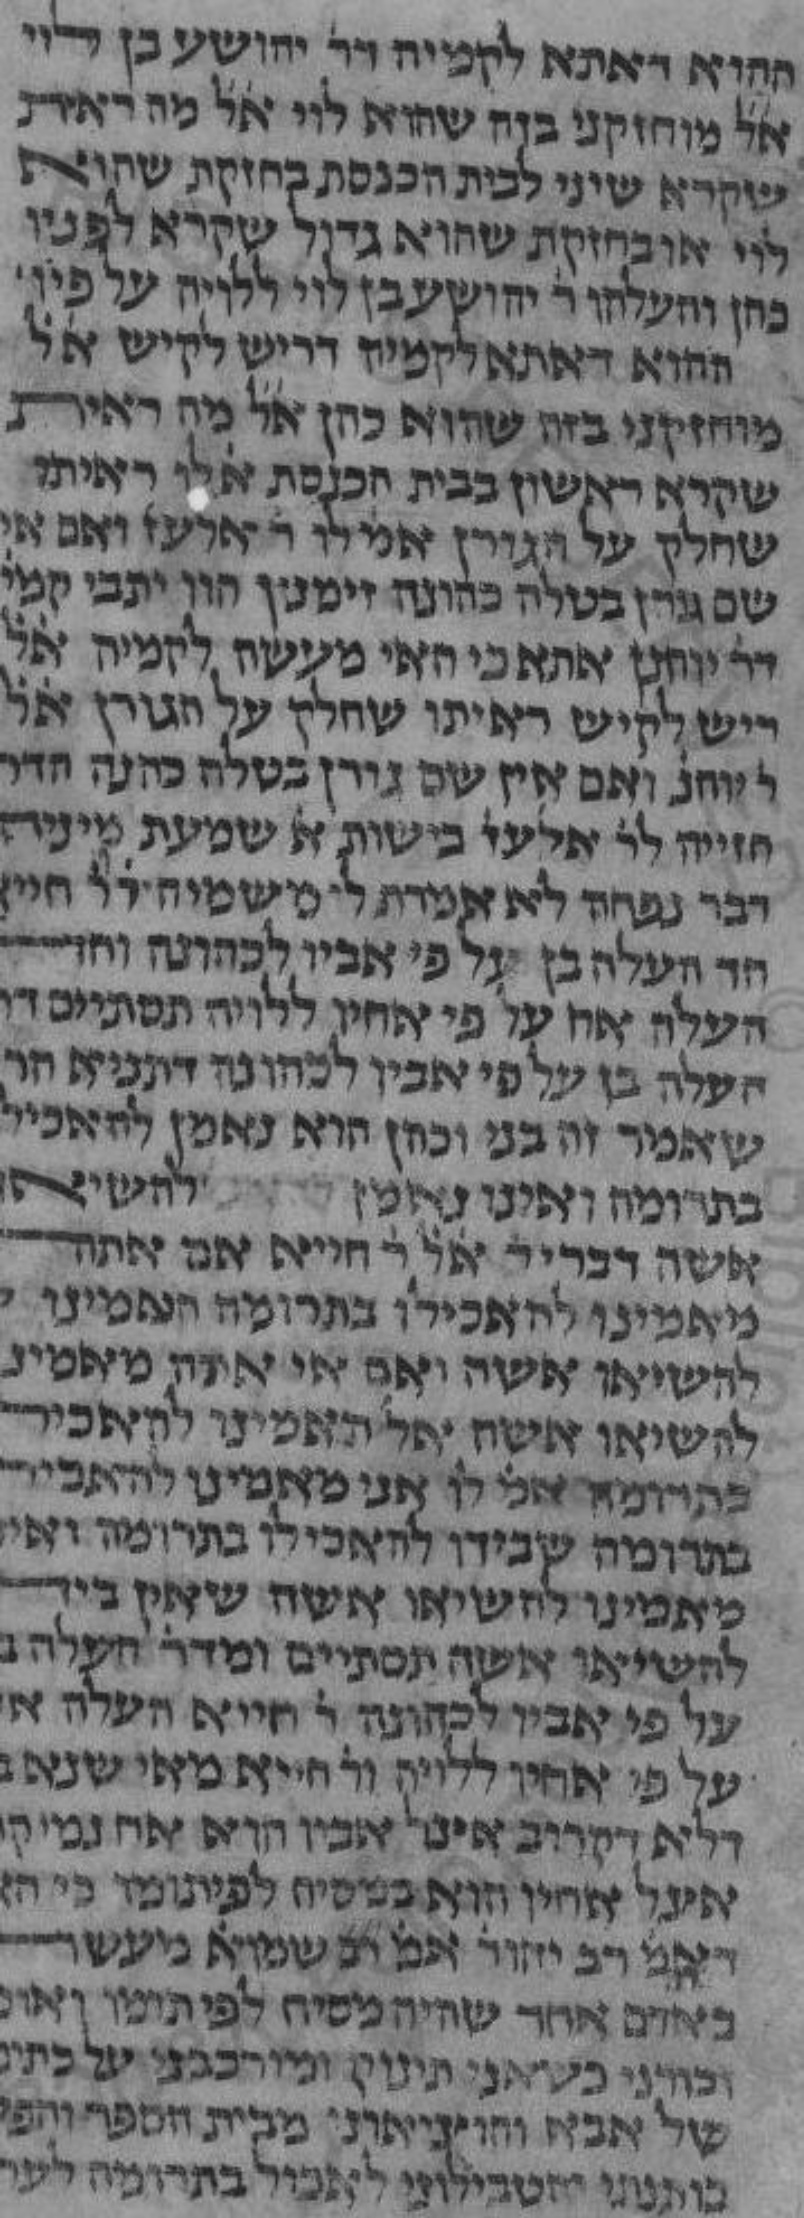 ההוא דאתא לקמיה דר יהושע בן לוי
אל מוחזקני בזה שהוא לוי אל מה ראית
שקרא שיני לבית הכנסת בחזקת שהוא
לוי או בחזקת שהוא גדול שקרא לפניו
כהן והעלהו ר יהושע בן לוי ללויה על פיו
ההוא דאתא לקמיה דריש לקיש אל
מוחזקני בזה שהוא כהן אל מה ראית
שקרא ראשון בבית הכנסת אלו ראיתו
שחלק על הגורן אמ לו ר אלעז ואם אי
שם גורן בטלה כהונה זימנין הוו יתבי קמי
דר יוחנן אתא כי האי מעשה לקמיה אל
ריש לקיש ראיתו שחלק על הגורן אל
ר יוחנ ואם אין שם גורן בטלה כהנה הדר
חזייה לר אלעז בישות א שמעת מיניה
דבר נפחה לא אמרת לי משמיה דר חייא
חד העלה בן על פי אביו לכהונה וחד
העלה אח על פי אחיו ללויה תסתיים דר
העלה בן על פי אביו לכהונה דתניא הרי
שאמר זה בני וכהן הוא נאמן להאכילו
בתרומה ואינו נאמן להשיאו
אשה דברי ר אל ר חייא אם אתה
מאמינו להאכילו בתרומה האמינו
להשיאו אשה ואם אי אתה מאמינו
להשיאו אשה אל תאמינו להאכיל
בתרומה אמ לו אני מאמינו להאכיל
בתרומה שבידו להאכילו בתרומה ואיני
מאמינו להשיאו אשה שאין ביד
להשיאו אשה תסתיים ומדר העלה ב
על פי אביו לכהונה ר חייא העלה אח
על פי אחיו ללויה ור חייא מאי שנא ב
דליא דקרוב איצל אביו הוא אח נמי קר
איצל אחיו הוא במסיח לפי תומו כי הא
דאמ רב יהוד אמ רב שמוא מעשה
באדם אחד שהיה מסיח לפי תומו ואומ
זכורני כשאני תינוק ומורכבני על כתיפ
של אבא והוציאוני מבית הספר והפשי
כותנתי והטבילוני לאכול בתרומה לער